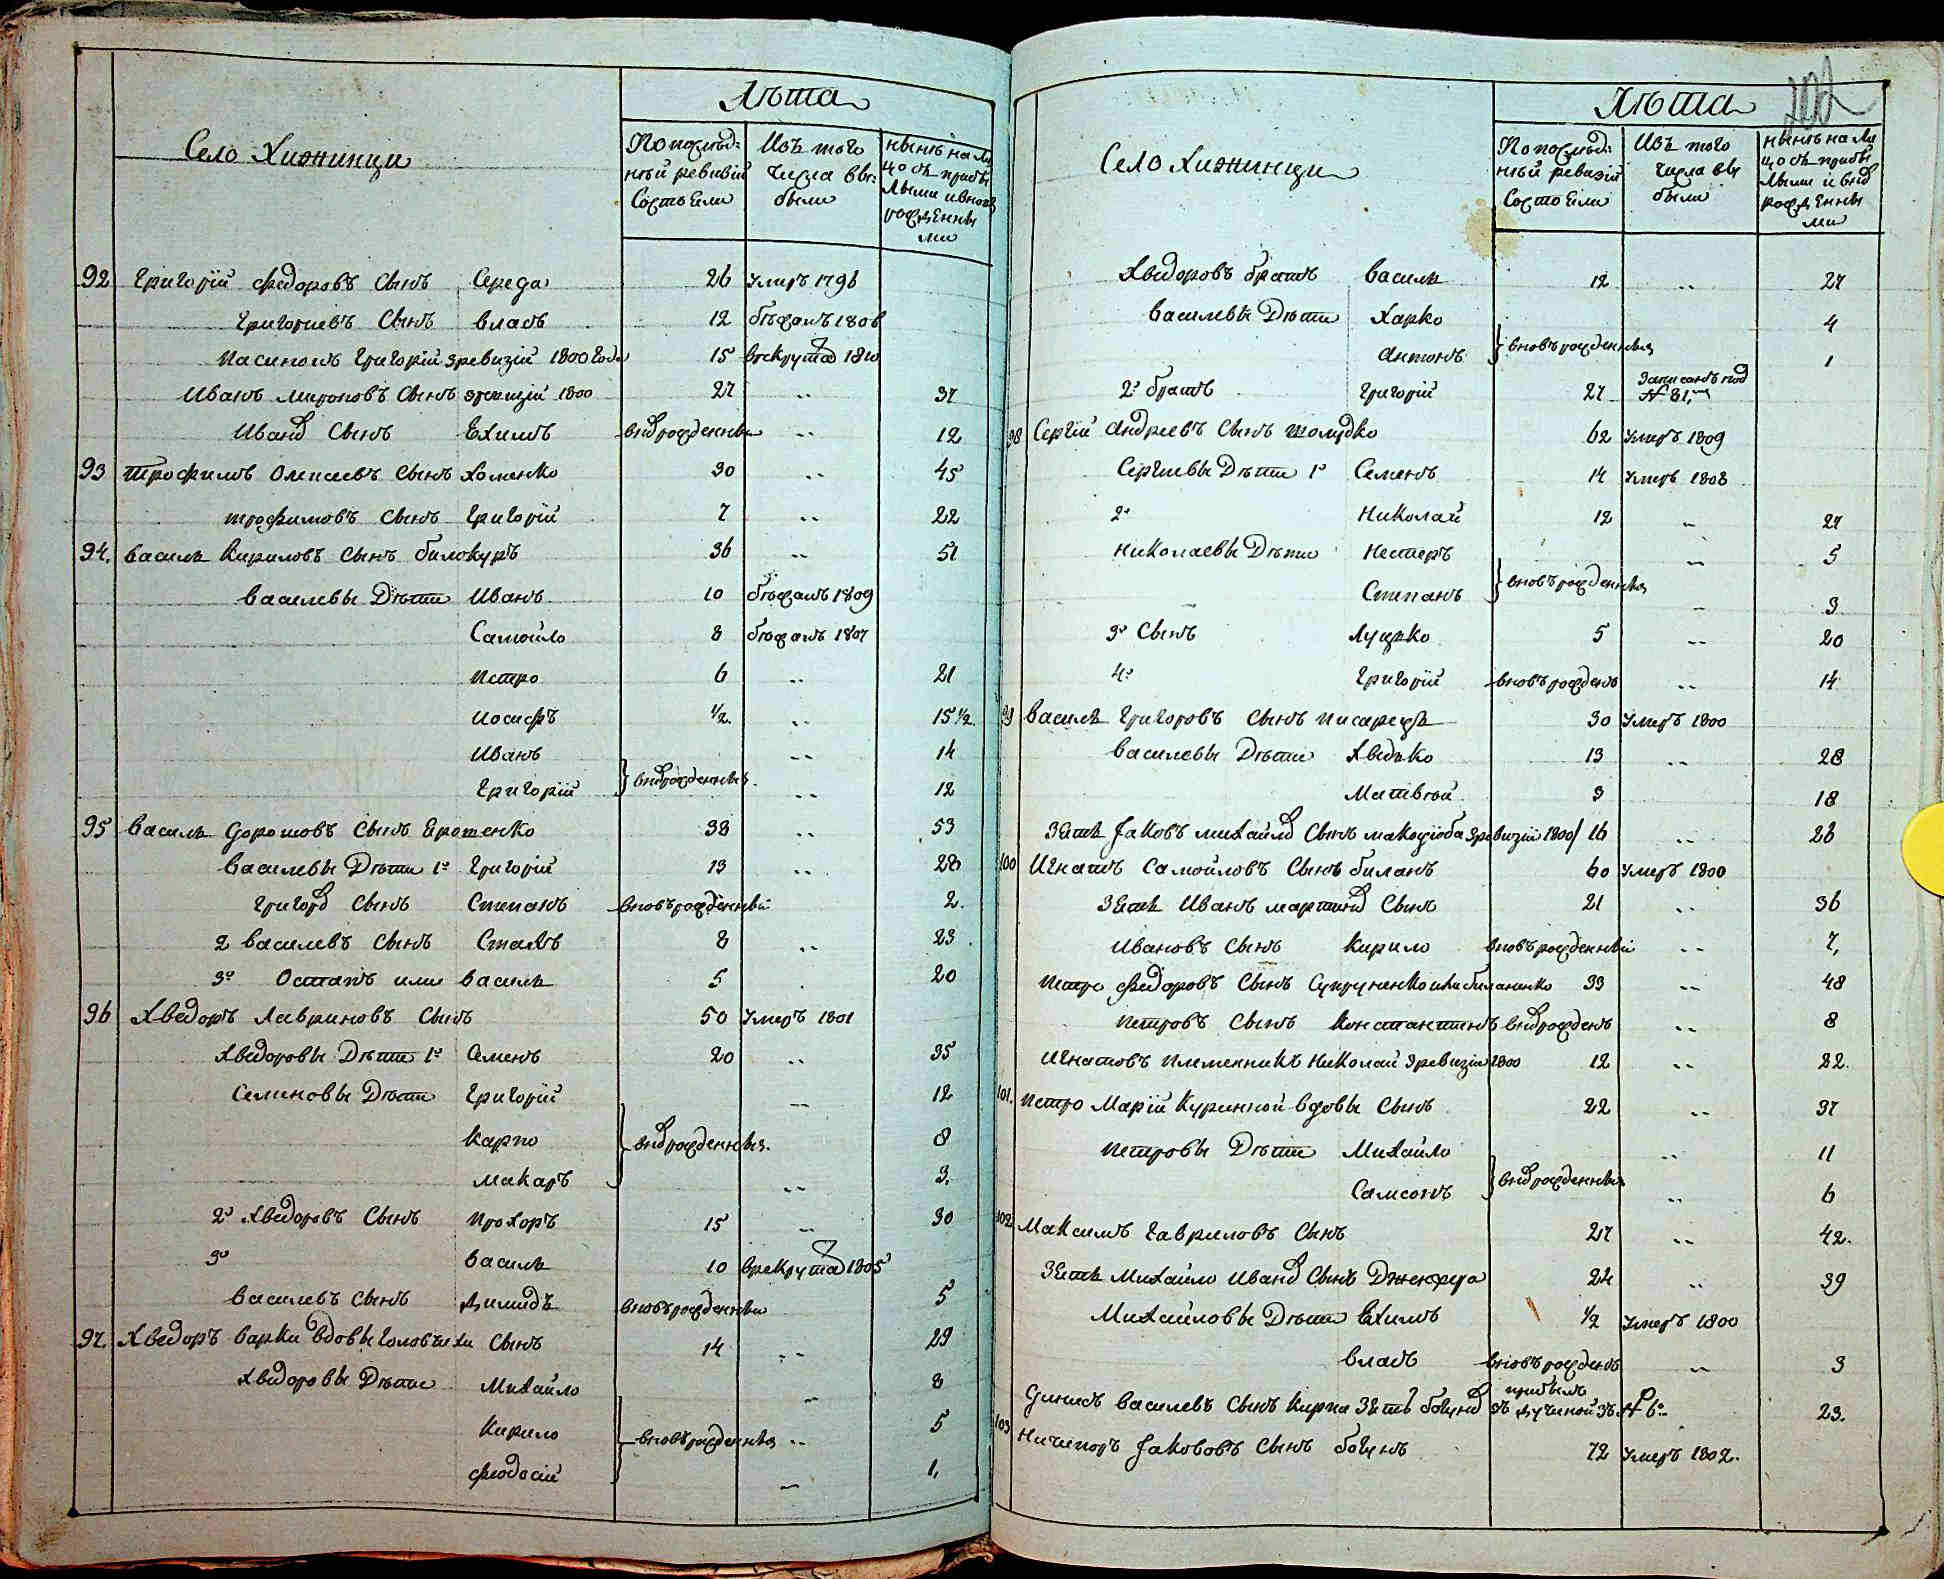 Лѣта
Село Хижинци
По послѣд:
нѣй ревизіи
Состоѣли
Изъ того
числа вы:
были
нынѣ на ли
цо съ прибы
лыми и внов
рожденны
ми
92 Григорій Федоровъ Сынъ Середа 26 Умеръ 1796
Григориевъ Сынъ Власъ 12 бѣжалъ 1806
Пасинокъ Григорій зревизій 1800 Года 15 врекрута 1810
Иванъ Мироновъ Сынъ зревизій 1800 27 37
Иванов Сынъ Ехимъ вноврожденный 12
93 Трофимъ Олексеевъ Сынъ Хоменко 30 45
Трофимовъ Сынъ Григорій 7 22
94. Василь Кириловъ Сынъ Билокуръ 36 51
Василевы Дѣти Иванъ 10 бѣжалъ 1809
Самойло 8 бѣжалъ 1807
Петро 6 21
Иосифъ 1/2. 15 1/2.
Иванъ 14
Григорій } вноврожденныя. 12
95 Василь Дорошовъ Сынъ Ерошенко 38 53
Василевы Дѣти 1й Григорій 13 28
Григоров Сынъ Степанъ вновьрожденный 2.
2 Василевъ Сынъ Стахъ 8 23
3й Остапъ или Василь 5 20
96 Хведоръ Лавриновъ Сынъ 50 Умеръ 1801
Хведоровы Дѣти 1й Семенъ 20 35
Семеновы Дѣти Григорій 12
Карпо } вноврожденныя. 8
Макаръ 3.
2й Хведоровъ Сынъ Прохоръ 15 30
3й Василь 10 врекрута 1805
Василевъ Сынъ Димидъ вновьрожденный 5
97. Хведоръ Варки вдовы Головъ Сынъ 14 29
Хведоровы Дѣти Михайло 8
Кирило } вновьрожденныя 5
Феодосій 1,
Лѣта
Село Хижинци
По послѣд:
нѣй ревизіи
Состоѣли
Изъ того
числа вы
были
нынѣ на ли
цо съ прибы
лыми и внов
рожденны
ми
Хведоровъ братъ Василь 12 27
Василевы Дѣти Харко 4
Антонъ } вновьрожденныя 1
2й братъ Григорій 27 Записанъ под
№ 81,
98 Сергій Андреевъ Сынъ Шолудко 62 Умеръ 1809
Сергиевы Дѣти 1й Семенъ 14 Умеръ 1808
2й Николай 12 27
Николаевы Дѣти Нестеръ 5
Степанъ } вновьрожденныя 3
3й Сынъ Луцько 5 20
4й Григорій вновьрожденъ 14
99 Василь Григоровъ Сынъ Писарець 30 Умеръ 1800
Василевы Дѣти Хведько 13 28
Матвѣй 3 18
Зять Яковъ Михайлов Сынъ Макоѣоба зревизій 1800/ 16 26
100 Игнатъ Самойловъ Сынъ Биланъ 60 Умеръ 1800
Зять Иванъ Мартинов Сынъ 21 36
Ивановъ Сынъ Кирило вновьрожденный 7,
Петро Федоровъ Сынъ Супруненко или Биланенко 33 48
Петровъ Сынъ Константинъ вноврожденъ 8
Игнатовъ племенникъ Николай зревизій 1800 12 22.
101. Петро Марій Куринной вдовы Сынъ 22 37
Петровы Дѣти Михайло 11
Самсонъ } вноврожденныя 6
102 Максимъ Гавриловъ Сынъ 27 42.
Зять Михайло Иванов Сынъ Дженжера 24 39
Михайловы Дѣти Ехимъ 1/2 Умеръ 1800
Власъ вновьрожденъ 3
Димидъ Василевъ Сынъ Кирпа Зять Боцунов прибылъ зъ № 6 23.
103 Ничипоръ Якововъ Сынъ Боцунъ 72 Умеръ 1802.